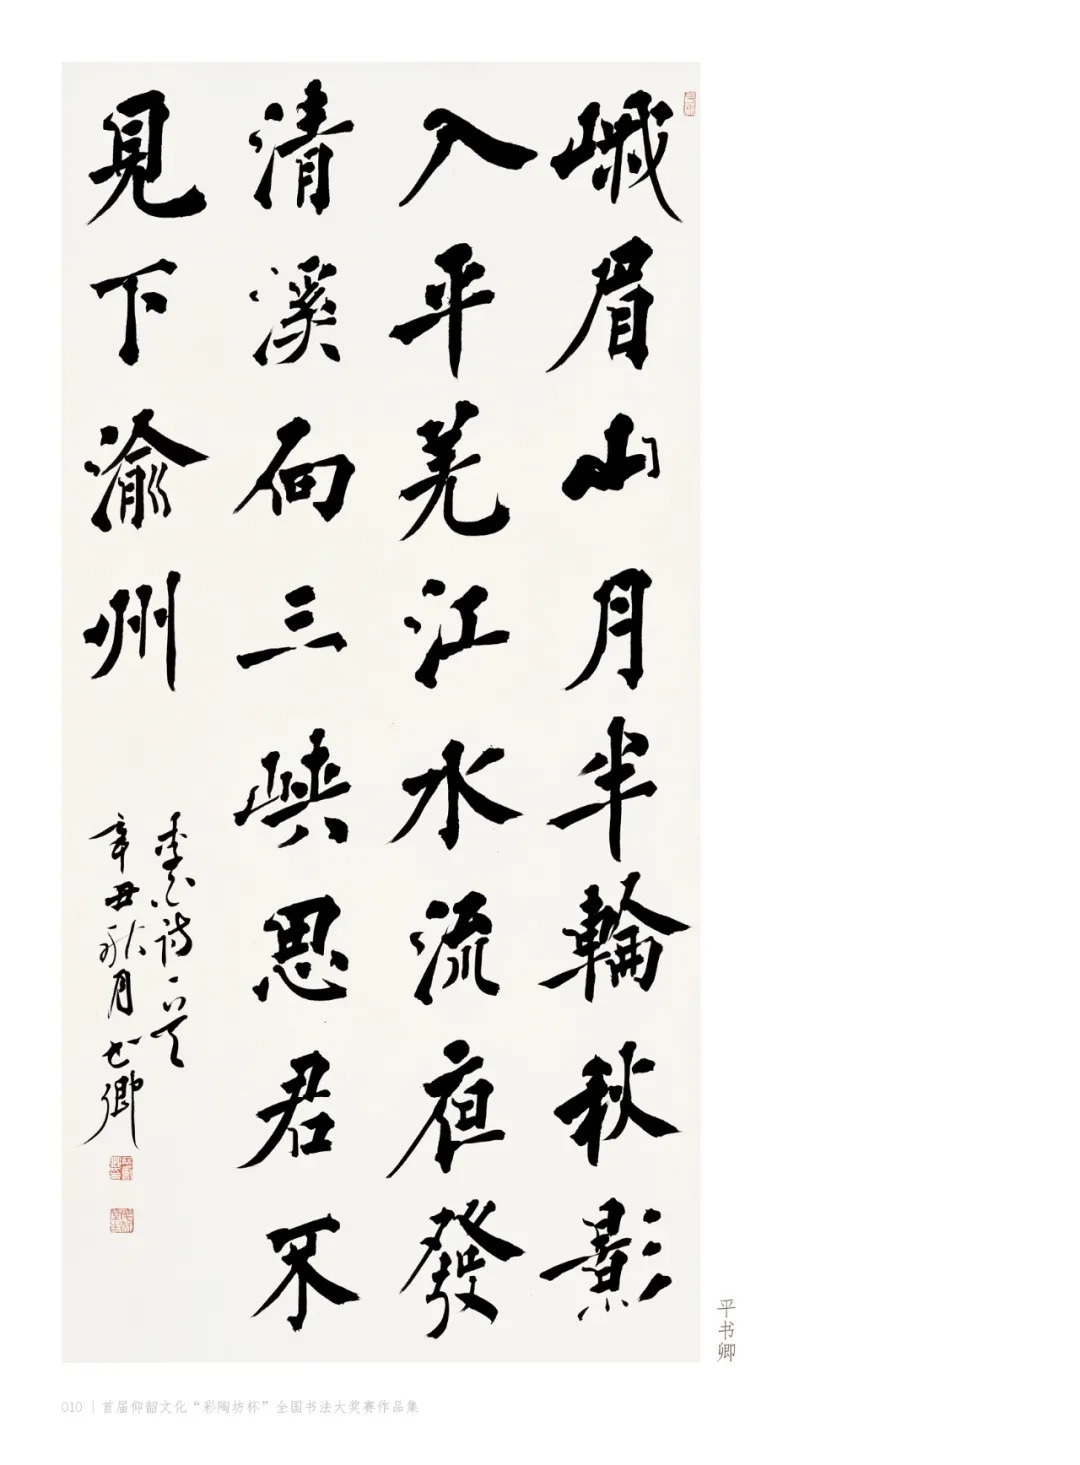 峨眉山月半輪秋影
入平羌江水流夜發
清溪向三峽思君不
見下渝州
李白诗一首
辛丑秋月书卿
平书卿
010 | 首届仰韶文化“彩陶坊杯”全国书法大奖赛作品集